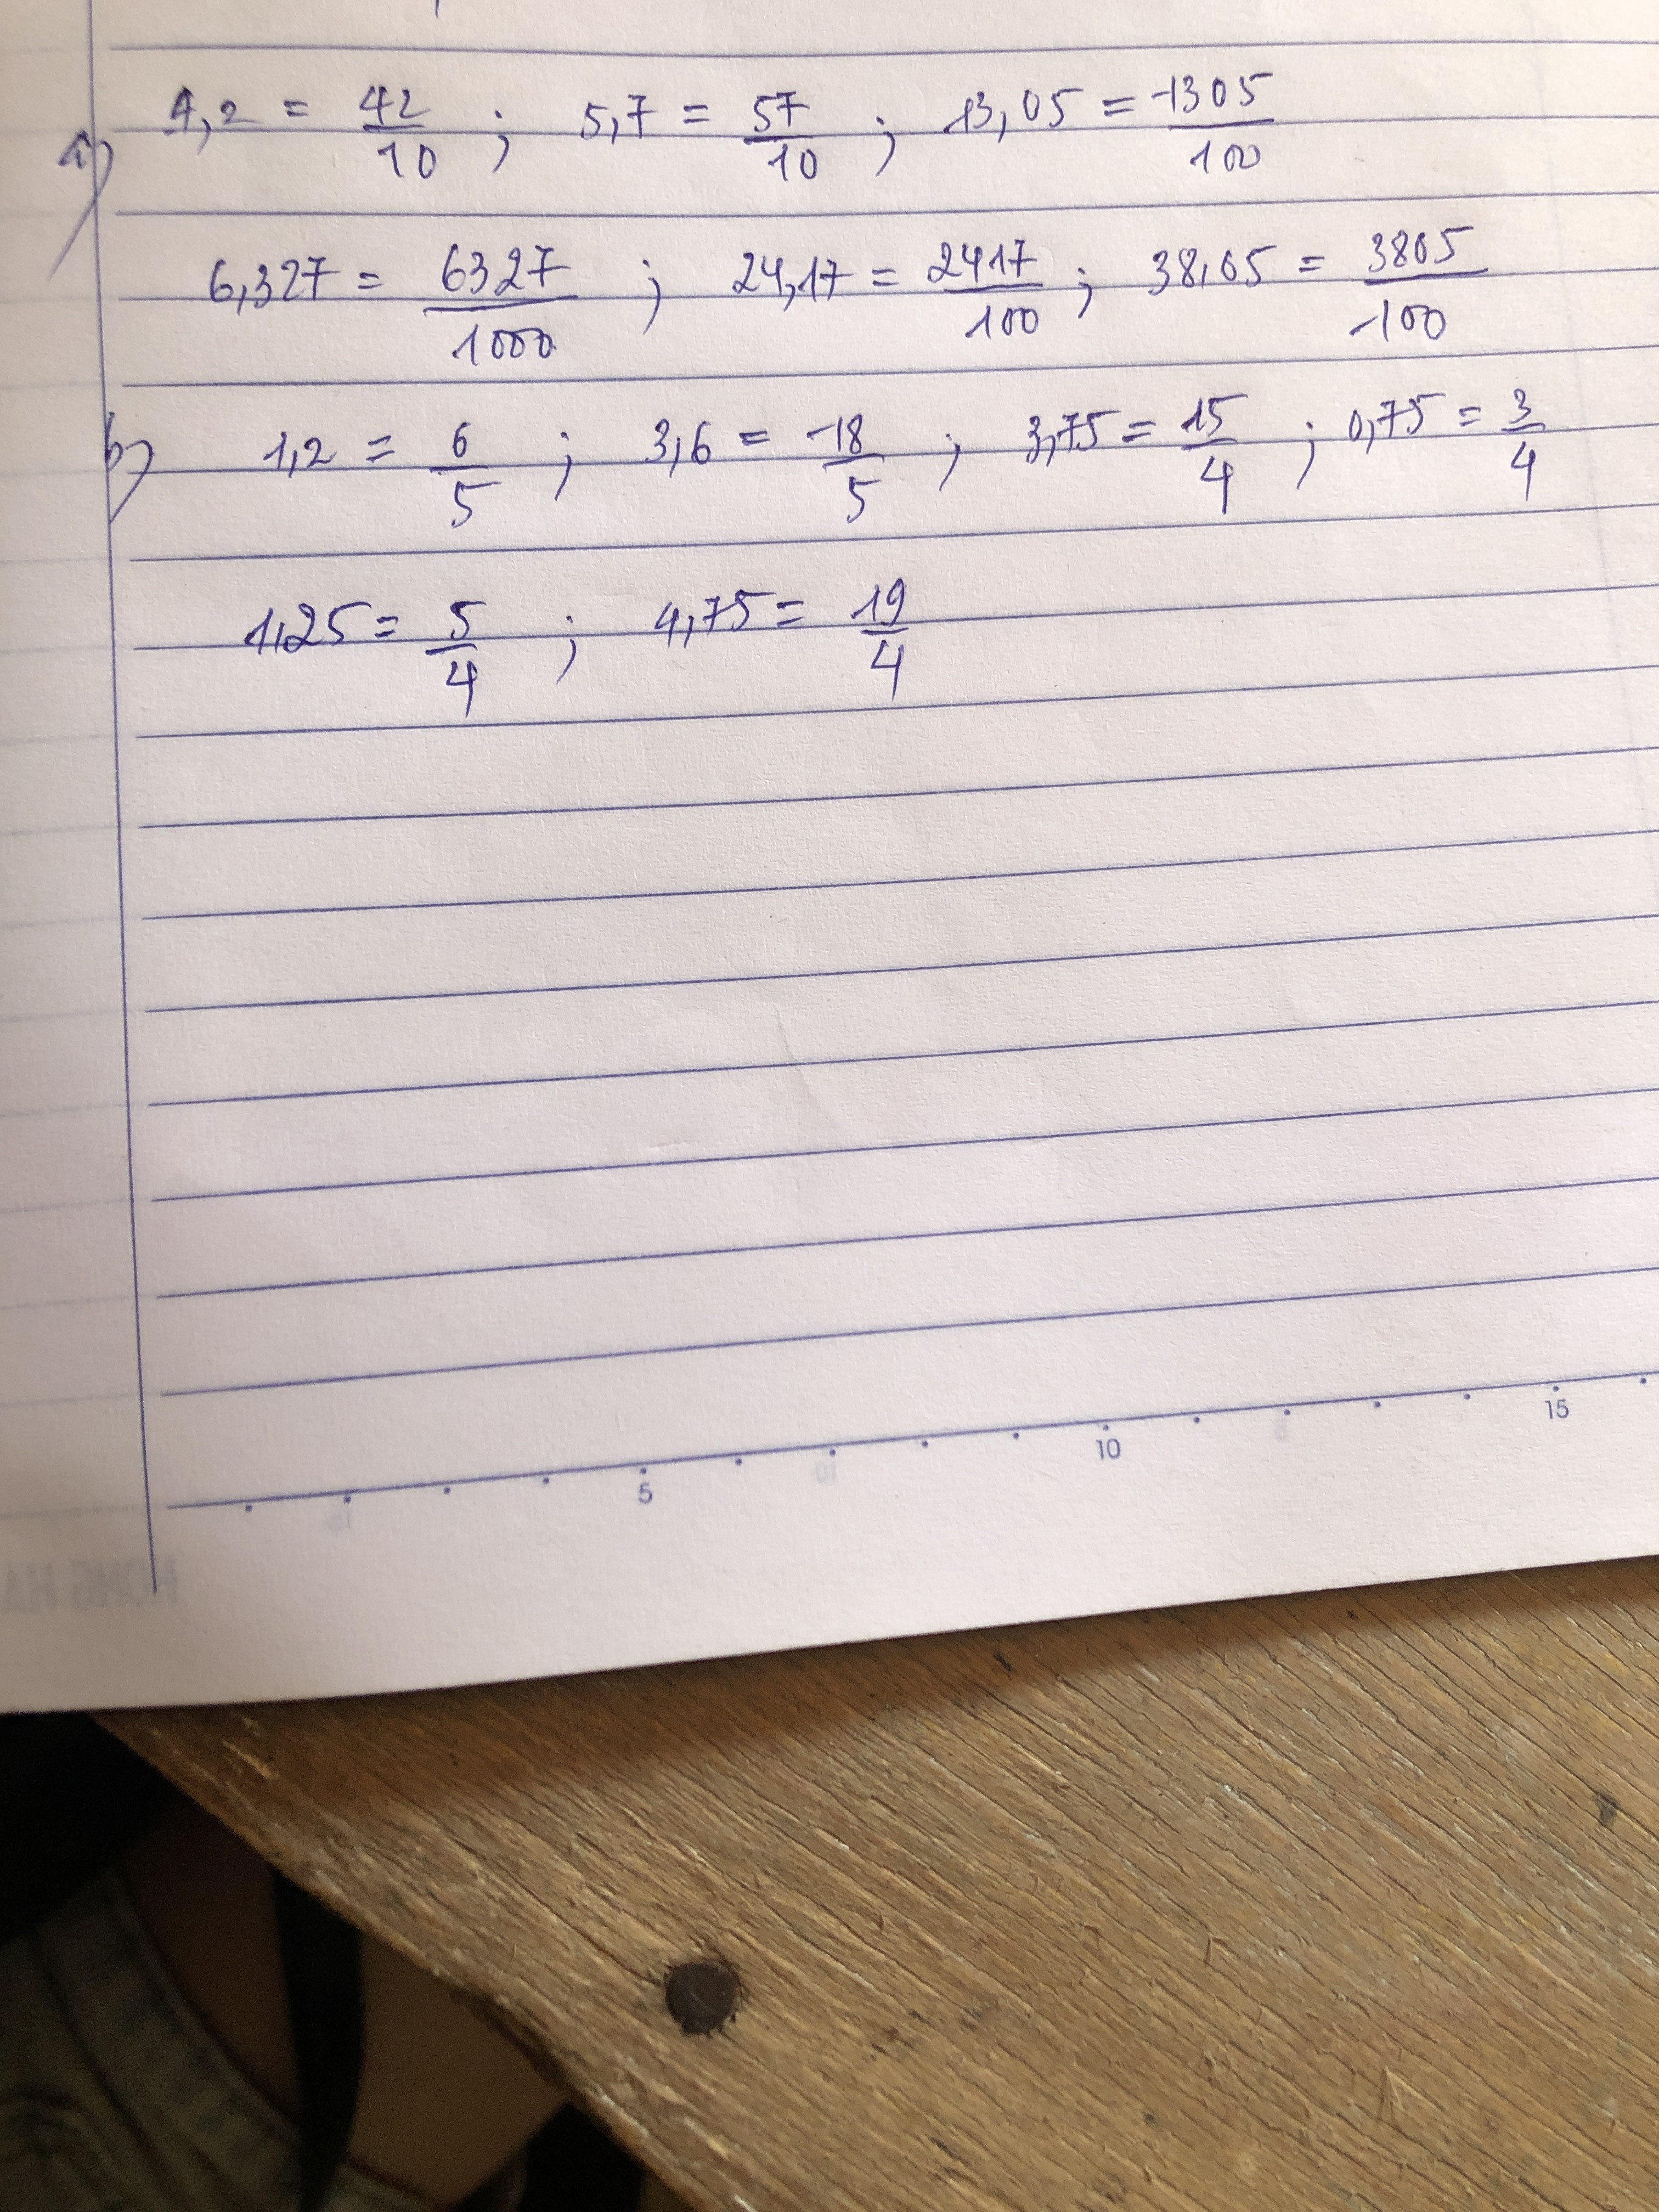 a) 4,2 = 42/10 ; 5,7 = 57/10 ; 13,05 = 1305/100
6,327 = 6327/1000 ; 24,17 = 2417/100 ; 38,05 = 3805/100
b) 1,2 = 6/5 ; 3,6 = 18/5 ; 3,75 = 15/4 ; 0,75 = 3/4
1,25 = 5/4 ; 4,75 = 19/4
5 10 15